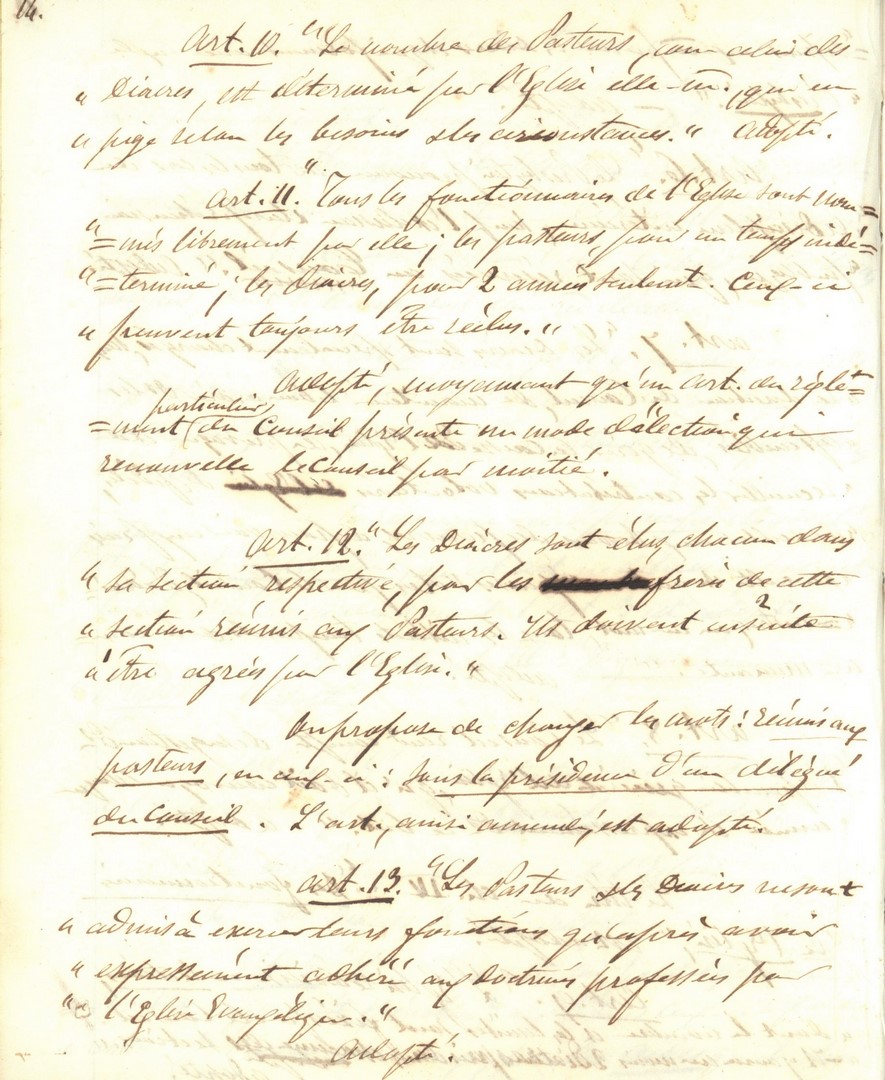 14.
Art. 10. "Le nombre des Pasteurs, com celui des
" Diacres, est déterminé par l'Eglise elle-m., qui en
" juge selon les besoins & les circonstances." Adopté.
Art. 11. "Tous les fonctionnaires de l'Eglise sont nom=
"=més librement par elle; les pasteurs, pour un temps indé=
"=terminé; les Diacres, pour 2 années seulemt. Ceux-ci
" peuvent toujours être réélus."
Adopté, moyennant qu'un art. du règle=
=ment particulier du Conseil présente un mode d'élection qui
renouvelle le Conseil par moitié.
Art. 12. "Les Diacres sont élus chacun dans
" sa section respective, par les frères de cette
" section réunis aux Pasteurs. Ils doivent ensuite
" être agréés par l'Eglise."
On propose de changer les mots: réunis aux
pasteurs, en ceux-ci: sous la présidence d'un délégué
du Conseil. L'art., ainsi amendé, est adopté.
Art. 13. "Les Pasteurs & les Diacres ne sont
" admis à exercer leurs fonctions qu'après avoir
" expressément adhéré aux doctrines professées par
" l'Eglise Evangélique."
Adopté.